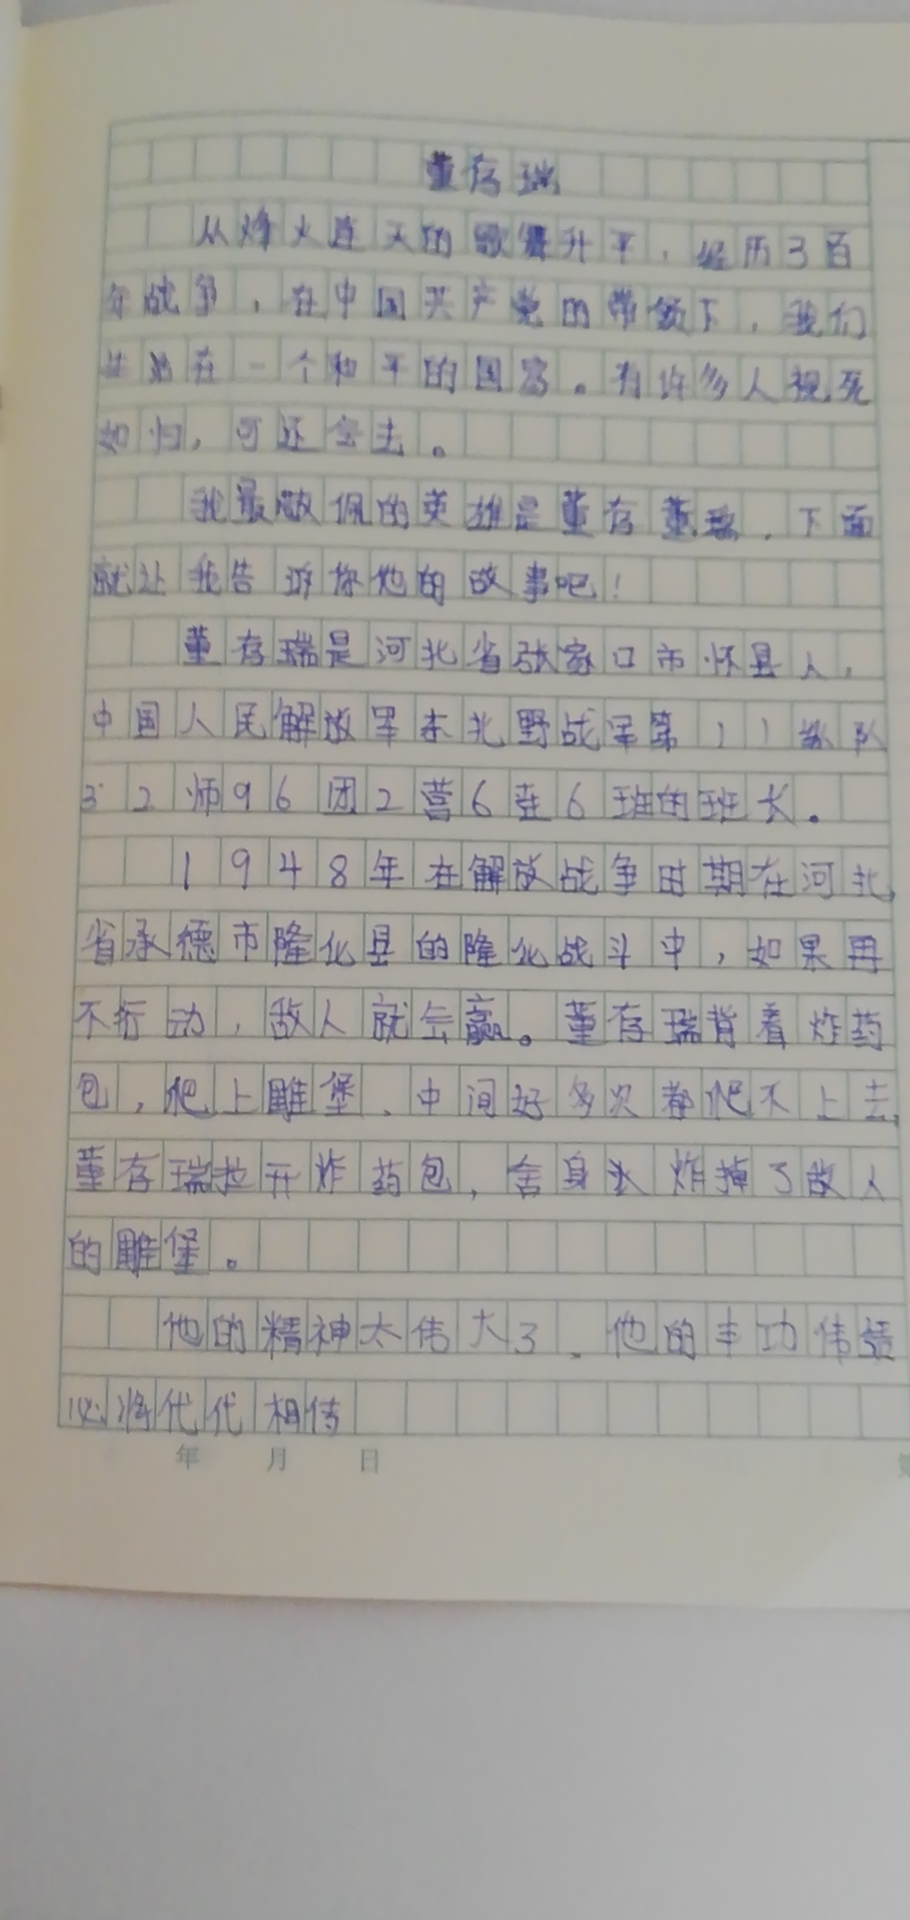 董存瑞
从烽火连天的歌舞升平，经历3百
年战争，在中国共产党的带领下，我们
生活在一个和平的国家。有许多人视死
如归，可还会去。
我最敬佩的英雄是董存董瑞，下面
就让我告诉你他的故事吧！
董存瑞是河北省张家口市怀县人，
中国人民解放军东北野战军第11纵队
32师96团2营6连6班的班长。
1948年在解放战争时期在河北
省承德市隆化县的隆化战斗中，如果再
不行动，敌人就会赢。董存瑞背着炸药
包，爬上雕堡、中间好多次都爬不上去，
董存瑞拉开炸药包，舍身炸掉了敌人
的雕堡。
他的精神太伟大了、他的丰功伟绩
必将代代相传
年 月 日